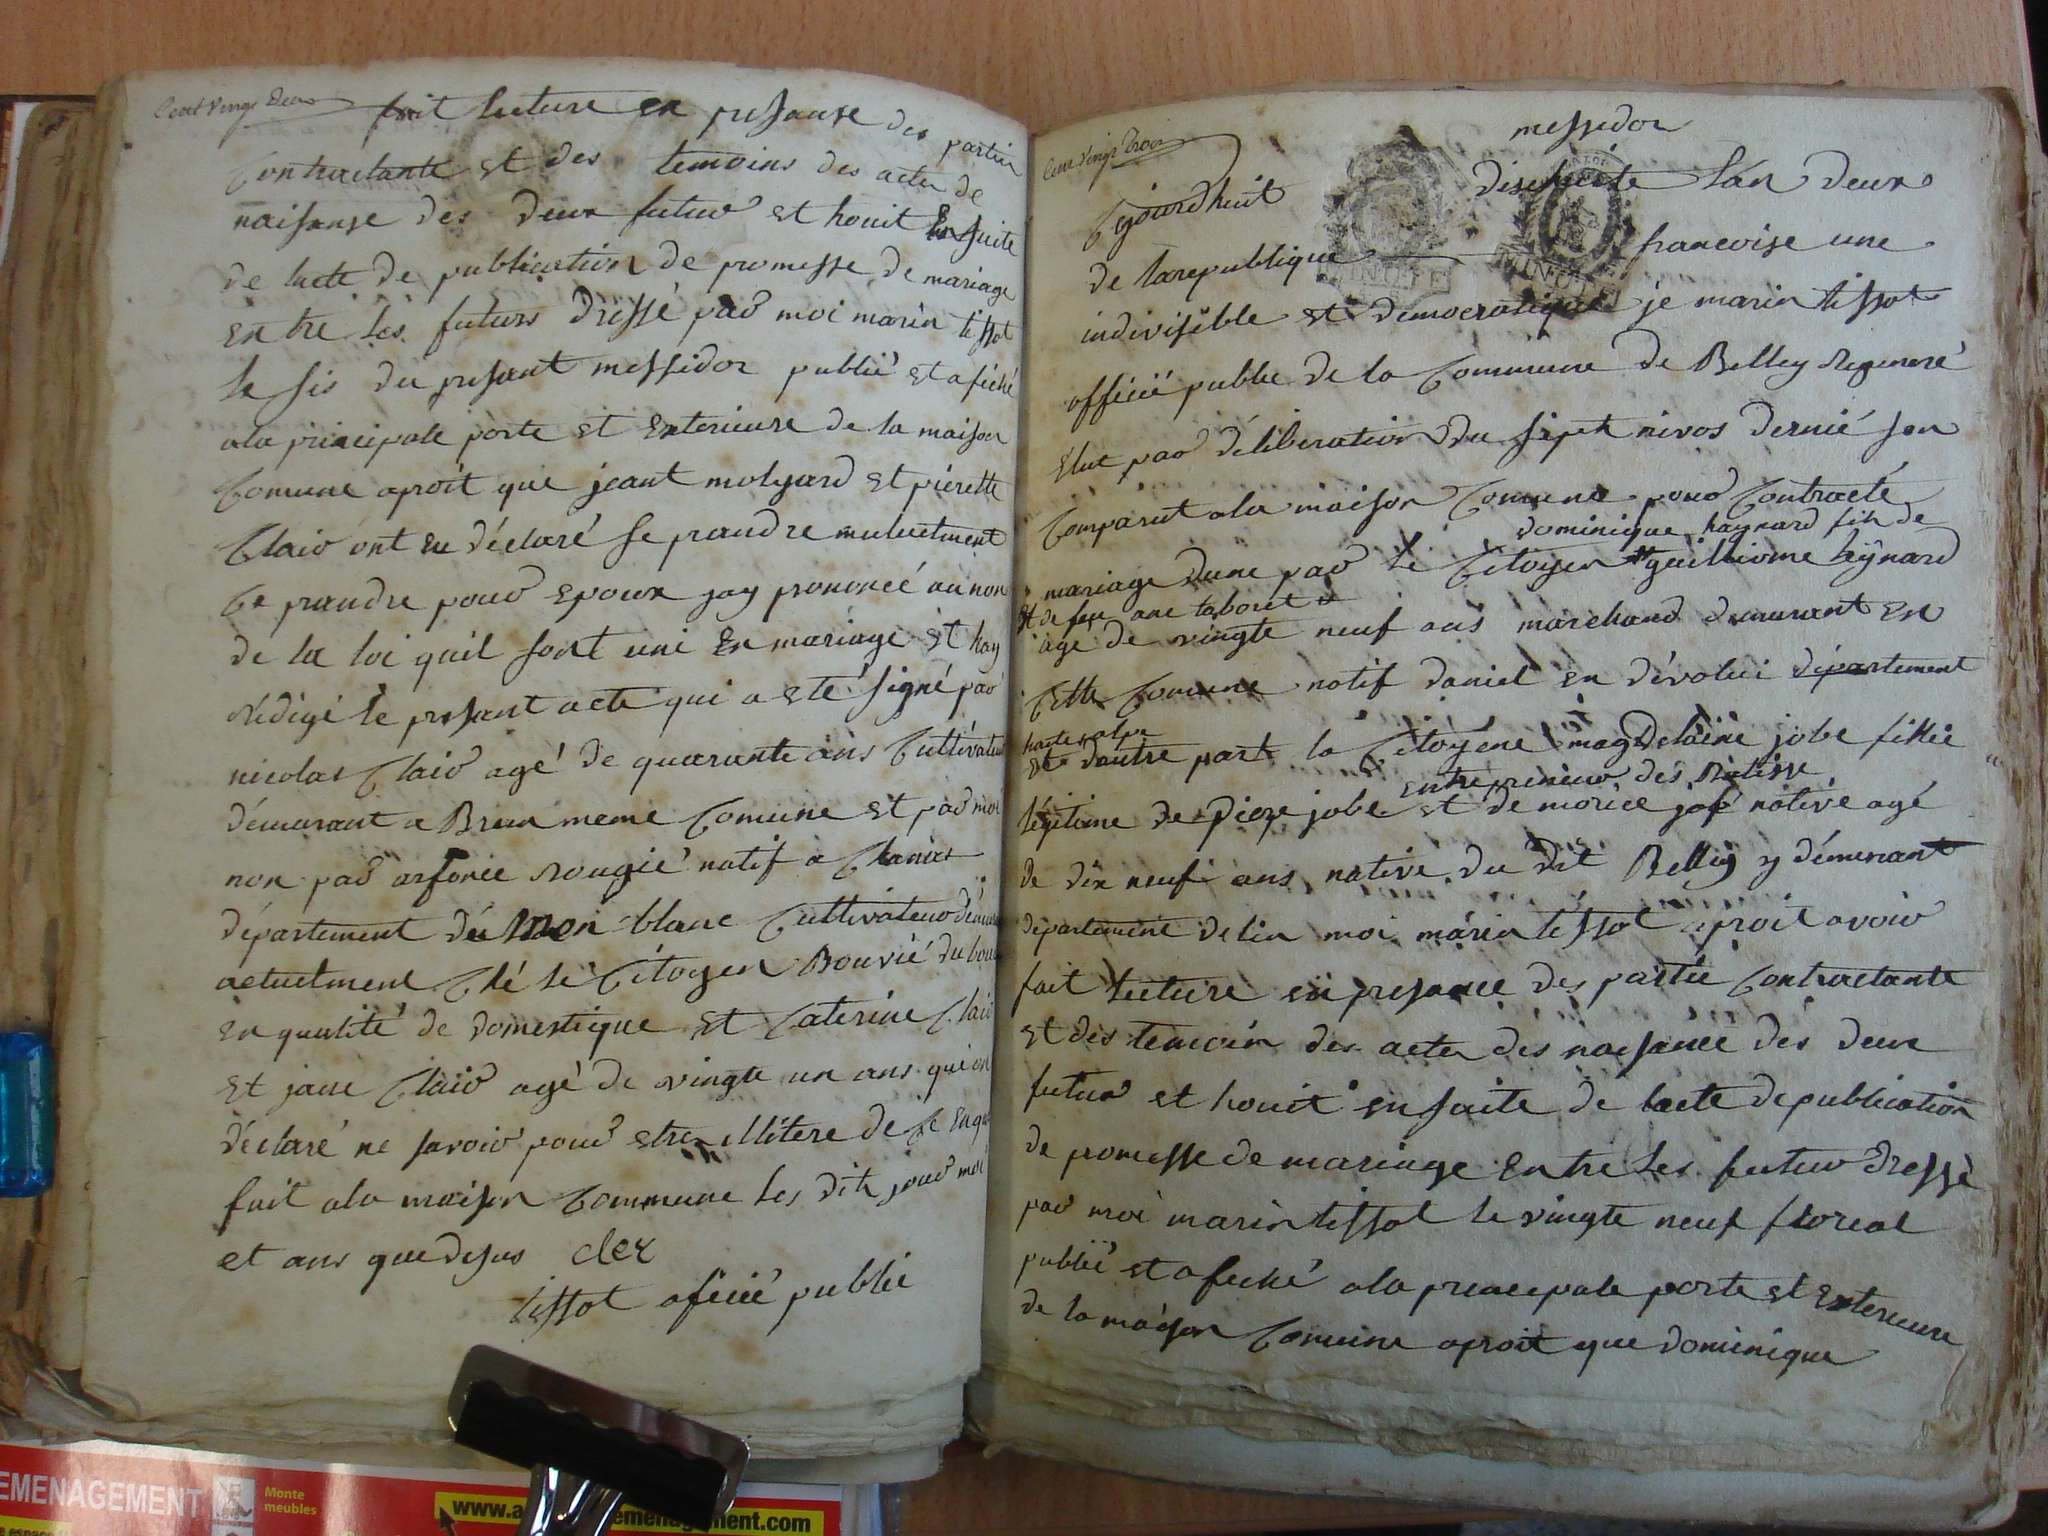 Cent vingt Deux
fait luture en presanse des partiee
Contractante et des temoins des actes de
naisanse des deux futur et houit En suite
de lacte de publication de promesse de mariage
Entre les futurs dressé par moi marin tissot
le sis du presant messidor publié et afiché
ala principale porte et Exterieure de la maison
Comune aproit que jeant molyard et piérette
Clair ont eu déclaré se prandre mutuelment
Ce prandre pour epoux jay prononcé au non
de la loi quil sont uni En mariage et hay
rédigé le presant acte qui a eté signé par
nicolas Clair agé de quarante ans Cultivateur
démurant a Bren meme Comune et par moi
non par anfonce rougié natif a Chanas
département du Mon blanc Cultivateur démur
actuelment Ché le Citoyen Bouvié du bour
En qualité de domestique et Caterine Clair
et jane Clair agé de vingte un ans qui on
déclaré ne savoir pour etre illitere de ce enqui
fait ala maison Commune les dits jour moi
et ans que desus cler
tissot oficié public
Cent vingt Trois
messidor
Cejourdhuit disehuite lan deux
de larepublique francoise une
MINUTE MINUTE
indivisible et democratique je marin tissot
officié public de la Commune de Belley régénéré
élut par déliberation du sept nivos dernié son
Comparut ala maison Comune pour Contracté
dominique haynard fils de
mariage dune par le Citoyen guilliome haynard
et de feu ane taboret
agé de vingte neuf ans marchand demurant en
Cette Comune natif daniel en dévolui département
haute alpe
et dautre part la Citoyène magdelaine jobe fillie
entrepreneur des Batisse
légitime de Piere jobe et de morice jofé native agé
de dix neuf ans native du dit Belley y démurant
département delin moi marin tissot aproit avoir
fait luture en presance des partie Contractante
et des temoin des actes des naisance des deux
futur et houit ensuite de lacte depublication
de promesse de mariage Entre les futur dressé
par moi marin tissot le vingte neuf floreal
publié et afiché ala principale porte et Exterieure
de la maison Comuine aproit que dominique
EMENAGEMENT
Monte
meubles
www.a emenagement.com